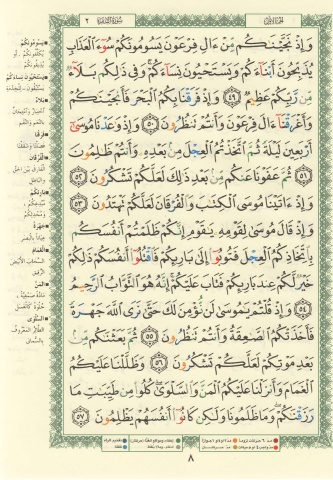 الجزء الأول
سورة البقرة ٢
وَإِذْ نَجَّيْنَٰكُم مِّنْ ءَالِ فِرْعَوْنَ يَسُومُونَكُمْ سُوٓءَ ٱلْعَذَابِ
يُذَبِّحُونَ أَبْنَآءَكُمْ وَيَسْتَحْيُونَ نِسَآءَكُمْ وَفِى ذَٰلِكُم بَلَآءٌ
مِّن رَّبِّكُمْ عَظِيمٌ ٤٩ وَإِذْ فَرَقْنَا بِكُمُ ٱلْبَحْرَ فَأَنجَيْنَٰكُمْ
وَأَغْرَقْنَآ ءَالَ فِرْعَوْنَ وَأَنتُمْ تَنظُرُونَ ٥٠ وَإِذْ وَٰعَدْنَا مُوسَىٰٓ
أَرْبَعِينَ لَيْلَةً ثُمَّ ٱتَّخَذْتُمُ ٱلْعِجْلَ مِنۢ بَعْدِهِۦ وَأَنتُمْ ظَٰلِمُونَ
٥١ ثُمَّ عَفَوْنَا عَنكُم مِّنۢ بَعْدِ ذَٰلِكَ لَعَلَّكُمْ تَشْكُرُونَ ٥٢
وَإِذْ ءَاتَيْنَا مُوسَى ٱلْكِتَٰبَ وَٱلْفُرْقَانَ لَعَلَّكُمْ تَهْتَدُونَ ٥٣
وَإِذْ قَالَ مُوسَىٰ لِقَوْمِهِۦ يَٰقَوْمِ إِنَّكُمْ ظَلَمْتُمْ أَنفُسَكُم
بِٱتِّخَاذِكُمُ ٱلْعِجْلَ فَتُوبُوٓا۟ إِلَىٰ بَارِئِكُمْ فَٱقْتُلُوٓا۟ أَنفُسَكُمْ ذَٰلِكُمْ
خَيْرٌ لَّكُمْ عِندَ بَارِئِكُمْ فَتَابَ عَلَيْكُمْ إِنَّهُۥ هُوَ ٱلتَّوَّابُ ٱلرَّحِيمُ
٥٤ وَإِذْ قُلْتُمْ يَٰمُوسَىٰ لَن نُّؤْمِنَ لَكَ حَتَّىٰ نَرَى ٱللَّهَ جَهْرَةً
فَأَخَذَتْكُمُ ٱلصَّٰعِقَةُ وَأَنتُمْ تَنظُرُونَ ٥٥ ثُمَّ بَعَثْنَٰكُم مِّنۢ
بَعْدِ مَوْتِكُمْ لَعَلَّكُمْ تَشْكُرُونَ ٥٦ وَظَلَّلْنَا عَلَيْكُمُ
ٱلْغَمَامَ وَأَنزَلْنَا عَلَيْكُمُ ٱلْمَنَّ وَٱلسَّلْوَىٰ كُلُوا۟ مِن طَيِّبَٰتِ مَا
رَزَقْنَٰكُمْ وَمَا ظَلَمُونَا وَلَٰكِن كَانُوٓا۟ أَنفُسَهُمْ يَظْلِمُونَ ٥٧
يسومونكم
يذبحون أبناءكم
بلاء
فرقنا
الفرقان
بارئكم
جهرة
الغمام
المن
السلوى
٨